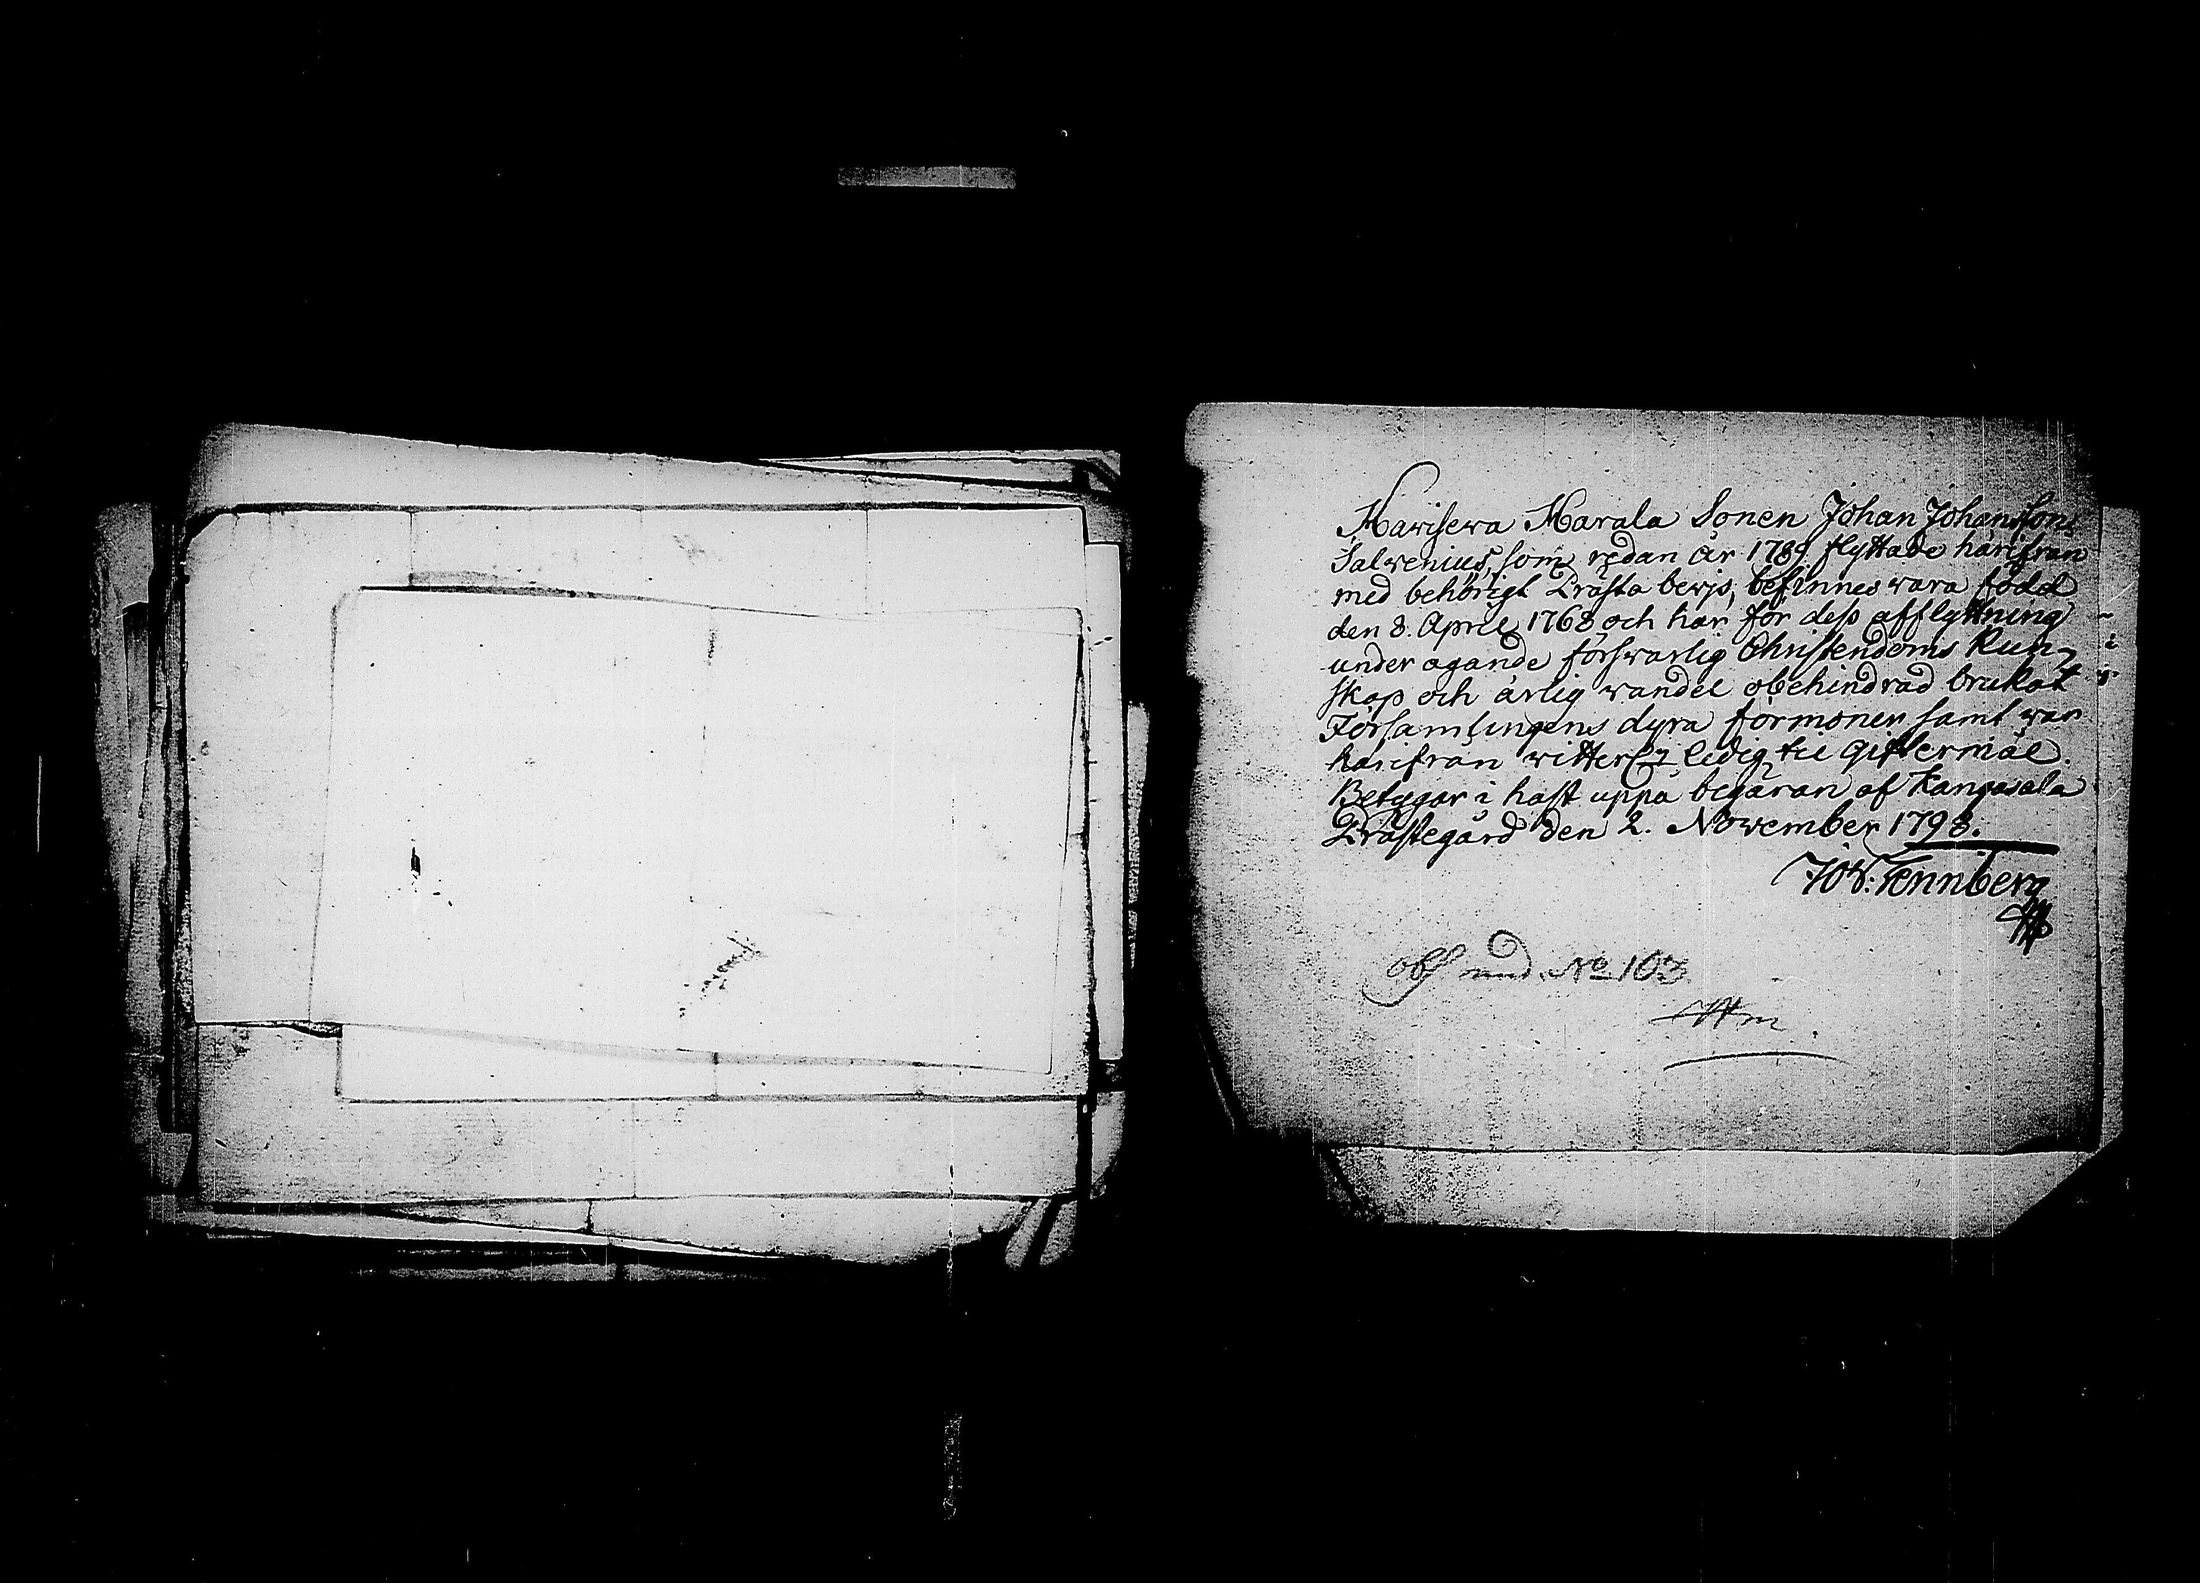 Hawisewa Harala Sonen Johan Johansson
Salvenius, som redan år 1789 flyttade härifrån
med behörigt Prästa bevjs, befinnes vara född
den 8. April 1768 och har för dess afflyttning
under ägande förswarlig Christendoms Kun-
skap och ärlig wandel obehindrad brukat
Församlingens dyra förmoner samt war
härifrån witterl:n ledig til Giftermål.
Betygar i hast uppå begäran af Kangasala
Prästegård den 2. November 1798.
Joh: Tennberg
obs und. No 103